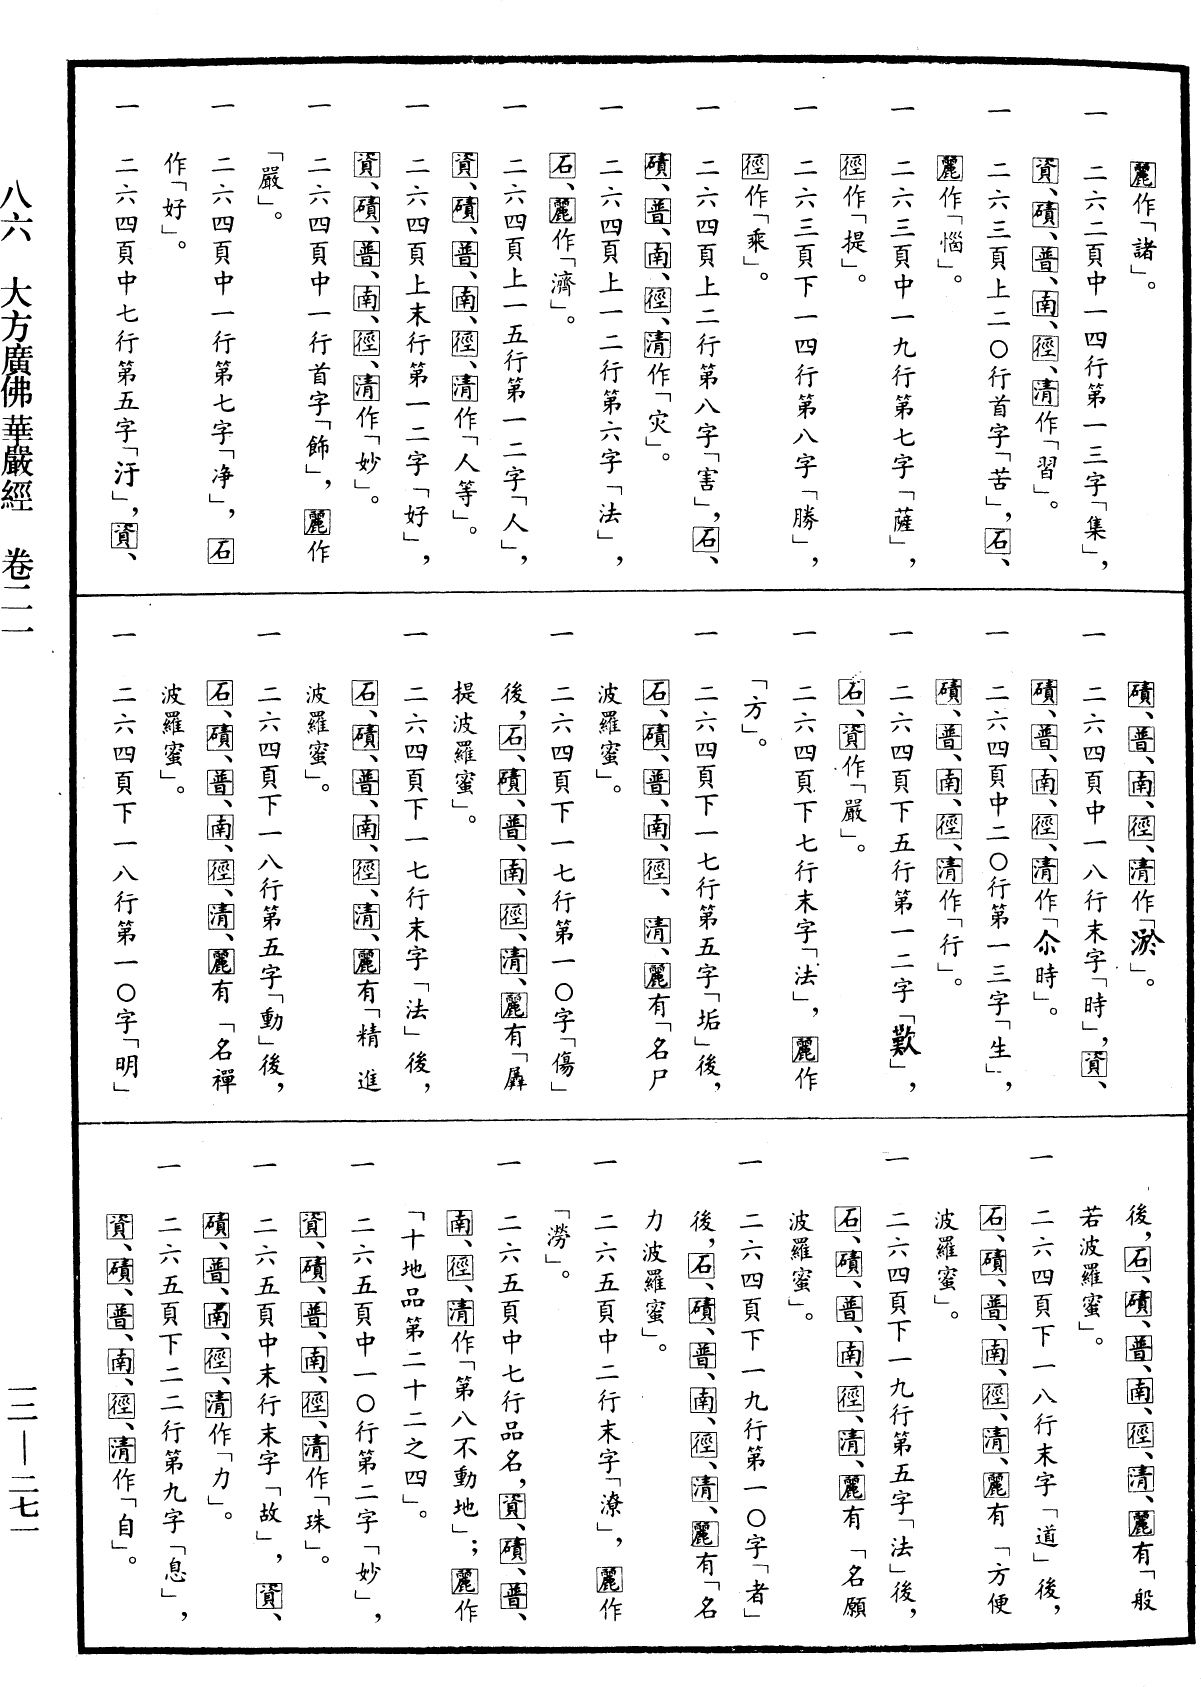 麗作「諸」。
一　二六二頁中一四行第一三字「集」，
資、磧、普、南、徑、清作「習」。
一　二六三頁上二〇行首字「苦」，石、
麗作「惱」。
一　二六三頁中一九行第七字「薩」，
徑作「提」。
一　二六三頁下一四行第八字「勝」，
徑作「乘」。
一　二六四頁上二行第八字「害」，石、
磧、普、南、徑、清作「灾」。
一　二六四頁上一二行第六字「法」，
石、麗作「濟」。
一　二六四頁上一五行第一二字「人」，
資、磧、普、南、徑、清作「人等」。
一　二六四頁上末行第一二字「好」，
資、磧、普、南、徑、清作「妙」。
一　二六四頁中一行首字「飾」，麗作
「嚴」。
一　二六四頁中一行第七字「净」，石
作「好」。
一　二六四頁中七行第五字「汙」，資、
磧、普、南、徑、清作「淤」。
一　二六四頁中一八行末字「時」，資、
磧、普、南、徑、清作「尒時」。
一　二六四頁中二〇行第一三字「生」，
磧、普、南、徑、清作「行」。
一　二六四頁下五行第一二字「歎」，
石、資作「嚴」。
一　二六四頁下七行末字「法」，麗作
「方」。
一　二六四頁下一七行第五字「垢」後，
石、磧、普、南、徑、清、麗有「名尸
波羅蜜」。
一　二六四頁下一七行第一〇字「傷」
後，石、磧、普、南、徑、清、麗有「羼
提波羅蜜」。
一　二六四頁下一七行末字「法」後，
石、磧、普、南、徑、清、麗有「精進
波羅蜜」。
一　二六四頁下一八行第五字「動」後，
石、磧、普、南、徑、清、麗有「名禪
波羅蜜」。
一　二六四頁下一八行第一〇字「明」
後，石、磧、普、南、徑、清、麗有「般
若波羅蜜」。
一　二六四頁下一八行末字「道」後，
石、磧、普、南、徑、清、麗有「方便
波羅蜜」。
一　二六四頁下一九行第五字「法」後，
石、磧、普、南、徑、清、麗有「名願
波羅蜜」。
一　二六四頁下一九行第一〇字「者」
後，石、磧、普、南、徑、清、麗有「名
力波羅蜜」。
一　二六五頁中二行末字「潦」，麗作
「澇」。
一　二六五頁中七行品名，資、磧、普、
南、徑、清作「第八不動地」；麗作
「十地品第二十二之四」。
一　二六五頁中一〇行第二字「妙」，
資、磧、普、南、徑、清作「珠」。
一　二六五頁中末行末字「故」，資、
磧、普、南、徑、清作「力」。
一　二六五頁下二二行第九字「息」，
資、磧、普、南、徑、清作「自」。
八六　大方廣佛華嚴經　卷二一
一二—二七一